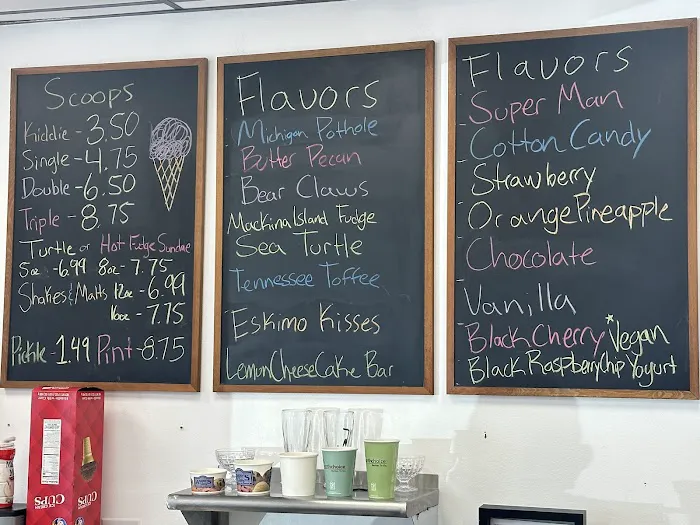 Scoops
Kiddie - 3.50
Single - 4.75
Double - 6.50
Triple - 8.75
Turtle or Hot Fudge Sundae
5oz - 6.99 8oz - 7.75
Shakes & Malts 12oz - 6.99
16oz - 7.75
Pickle - 1.49 Pint - 8.75
Flavors
Michigan Pothole
Butter Pecan
Bear Claws
Mackina Island Fudge
Sea Turtle
Tennessee Toffee
Eskimo Kisses
Lemon Cheese Cake Bar
Flavors
Super Man
Cotton Candy
Strawberry
Orange Pineapple
Chocolate
Vanilla
Black Cherry *Vegan
Black Raspberry Chip Yogurt
CUPS
CUPS